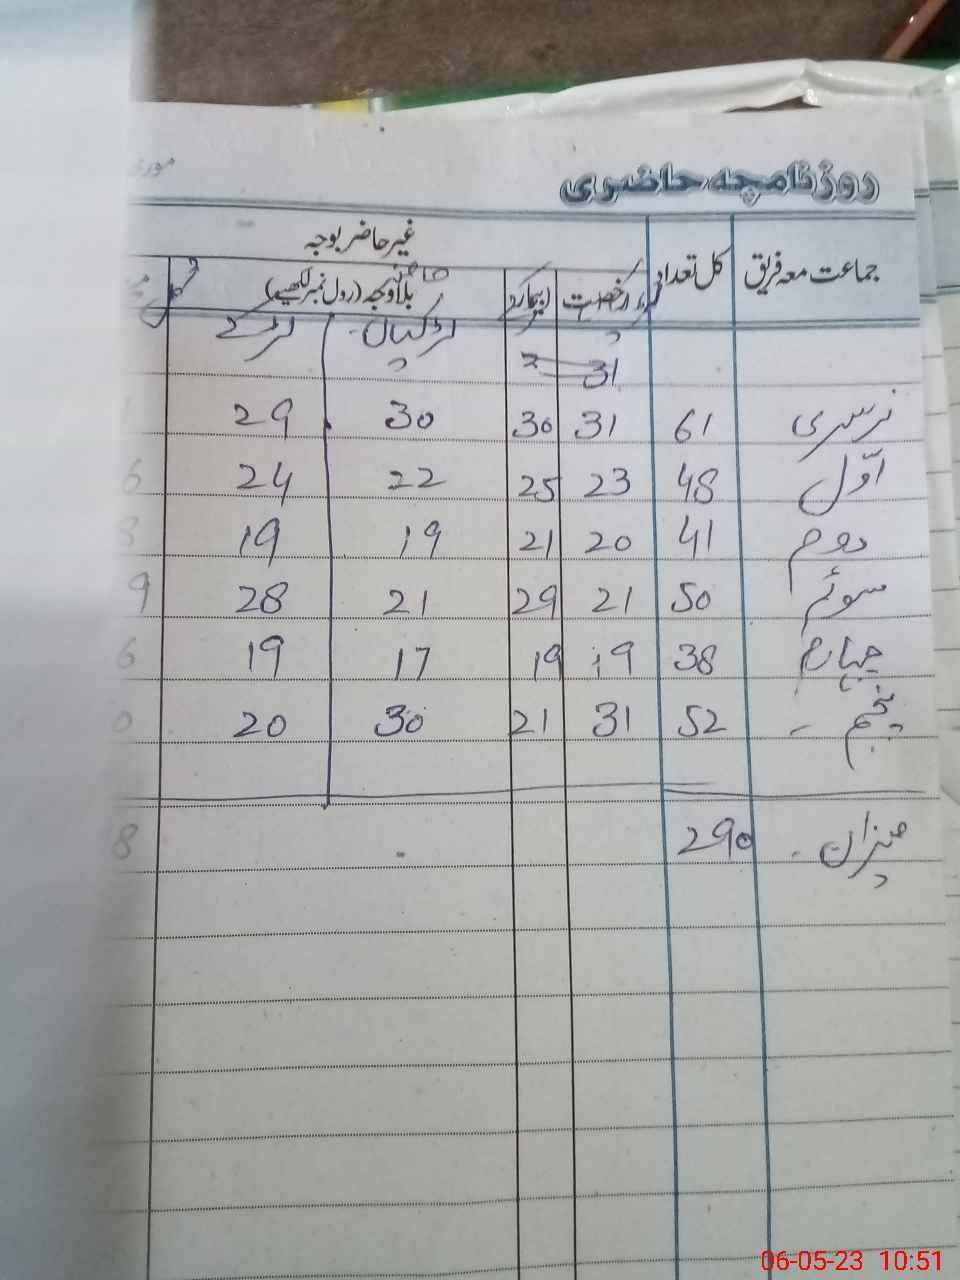 روزنامچہ حاضری
جماعت معہ فریق کل تعداد غیر حاضر بوجہ
رخصت بیماری بلاوجہ (رول نمبر لکھیے)
لڑکیاں لڑکے
31
نرسری 61 31 30 30 29
اوّل 48 23 25 22 24 6
دوم 41 20 21 19 19 8
سوئم 50 21 29 21 28 9
چہارم 38 19 19 17 19 6
پنجم - 52 31 21 30 20 0
میزان - 290 8
06-05-23 10:51